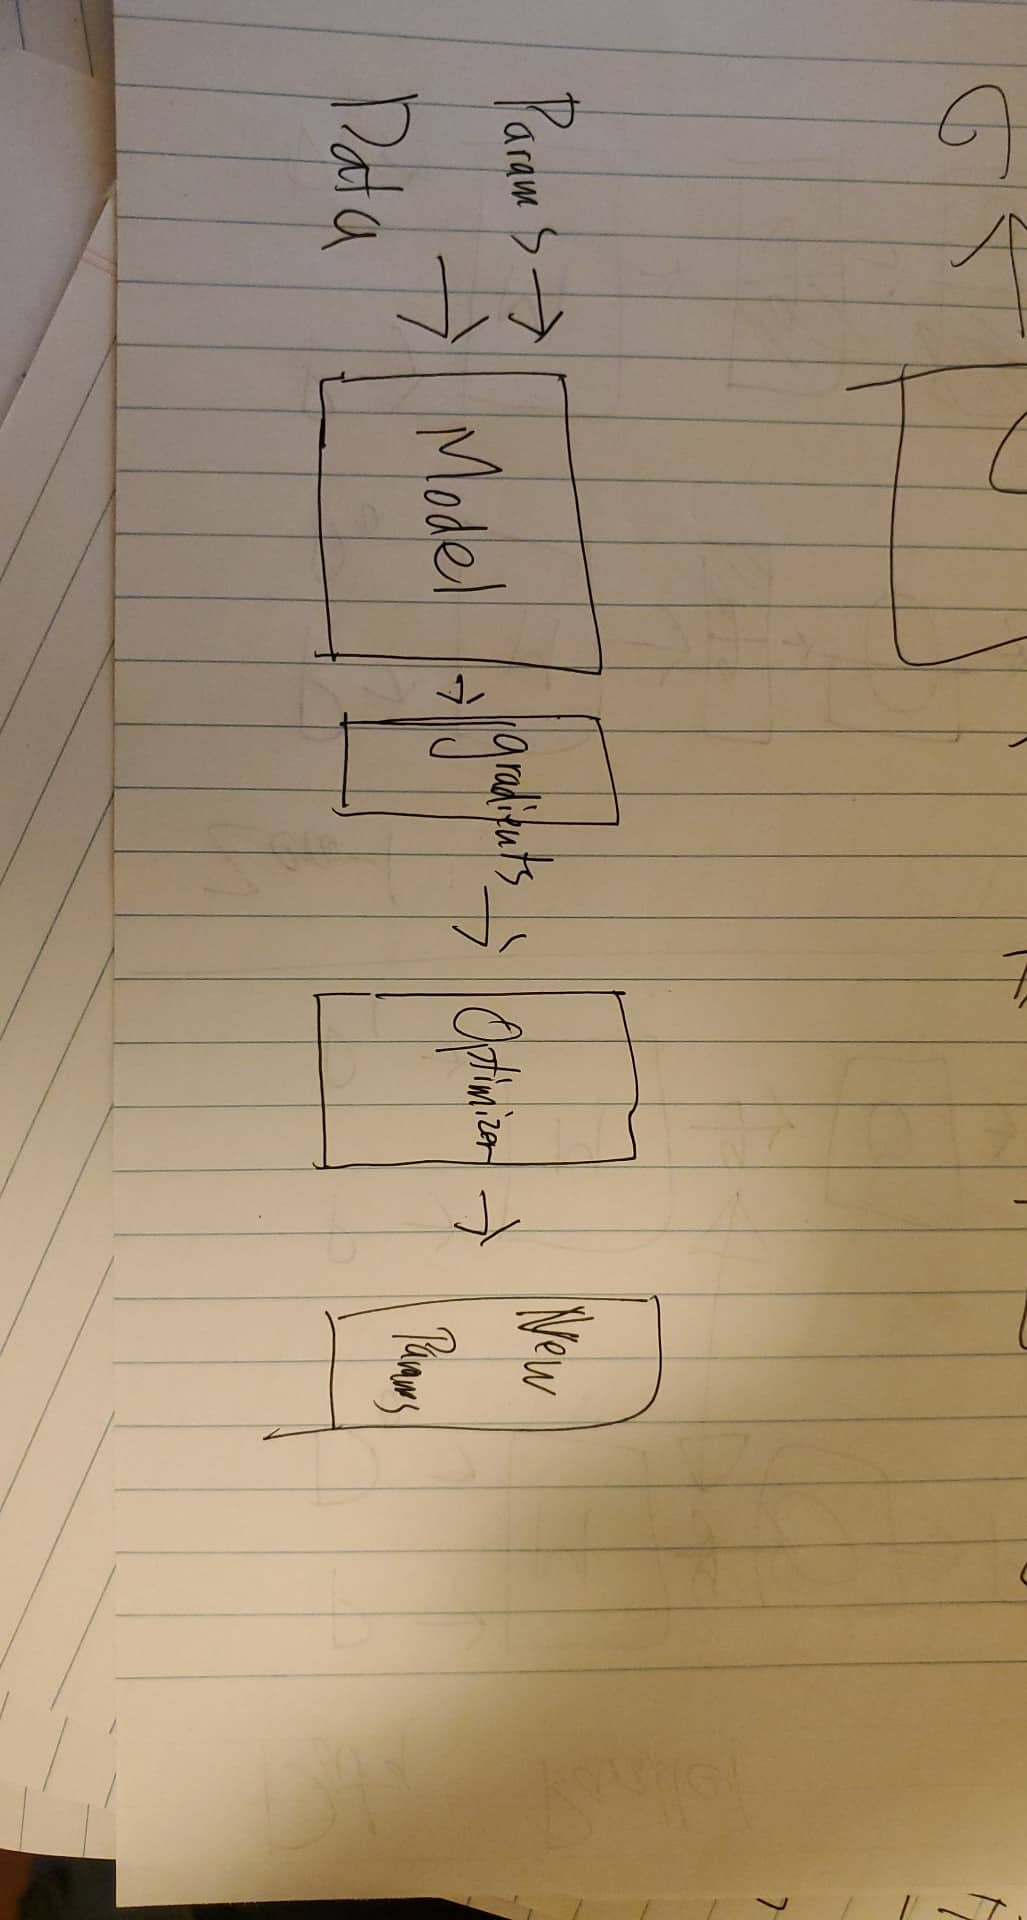 Params →
Data →
Model
→
gradients
→
Optimizer
→
New
Params